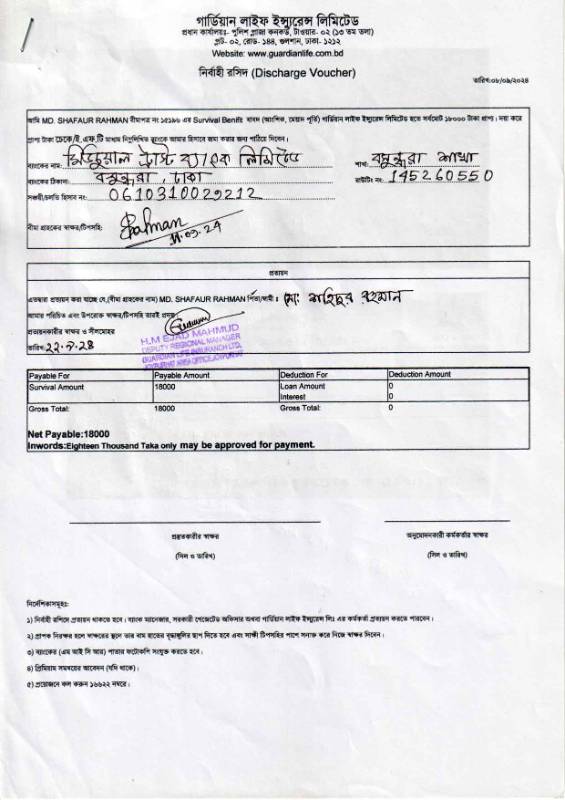 গার্ডিয়ান লাইফ ইন্স্যুরেন্স লিমিটেড
প্রধান কার্যালয়ঃ- পুলিশ প্লাজা কনকর্ড, টাওয়ার- ০২ (১৩ তম তলা)
প্লট- ০২, রোড- ১৪৪, গুলশান, ঢাকা- ১২১২
Website: www.guardianlife.com.bd
নির্বাহী রসিদ (Discharge Voucher)
তারিখ:০৮/০৯/২০২৪
আমি MD. SHAFAUR RAHMAN বীমাপত্র নং এর Survival Benifit বাবদ (আংশিক, মেয়াদ পূর্তি) গার্ডিয়ান লাইফ ইন্স্যুরেন্স লিমিটেড হতে সর্বমোট ১৮০০০ টাকা প্রাপ্য। দয়া করে
প্রাপ্য টাকা চেকে/ই.এফ.টি মাধ্যম নিম্নলিখিত ব্যাংকে আমার হিসাবে জমা করার জন্য পাঠিয়ে দিবেন।
ব্যাংকের নাম: মিউচুয়াল ট্রাস্ট ব্যাংক লিমিটেড শাখা: বসুন্ধরা শাখা
ব্যাংকের ঠিকানা: বসুন্ধরা, ঢাকা রাউটিং নং: 145260550
সঞ্চয়ী/চলতি হিসাব নং: 0610310029212
বীমা গ্রাহকের স্বাক্ষর/টিপসহি: Rahman
11.09.24
প্রত্যয়ন
এতদ্বারা প্রত্যয়ন করা যাচ্ছে যে,(বীমা গ্রাহকের নাম) MD. SHAFAUR RAHMAN পিতা/স্বামী : মোঃ রহমান
আমার পরিচিত এবং উপরোক্ত স্বাক্ষর/টিপসহি তারই প্রদত্ত
প্রত্যয়নকারীর স্বাক্ষর ও সীলমোহর
তারিখ: ২২.৯.২৪
H.M EJAD MAHMUD
DEPUTY REGIONAL MANAGER
GUARDIAN LIFE INSURANCE LTD.
Payable For Payable Amount Deduction For Deduction Amount
Survival Amount 18000 Loan Amount 0
Interest 0
Gross Total: 18000 Gross Total: 0
Net Payable:18000
Inwords:Eighteen Thousand Taka only may be approved for payment.
প্রস্তুতকারীর স্বাক্ষর অনুমোদনকারী কর্মকর্তার স্বাক্ষর
(সিল ও তারিখ) (সিল ও তারিখ)
নির্দেশিকাসমূহঃ
১) নির্বাহী রশিদে প্রত্যয়ন থাকতে হবে। ব্যাংক ম্যানেজার, সরকারী গেজেটেড অফিসার অথবা গার্ডিয়ান লাইফ ইন্স্যুরেন্স লিঃ এর কর্মকর্তা প্রত্যয়ন করতে পারবেন।
২) প্রাপক নিরক্ষর হলে স্বাক্ষরের স্থলে তার বাম হাতের বৃদ্ধাঙ্গুলির ছাপ দিতে হবে এবং সাক্ষী টিপসহির পাশে সনাক্ত করে নিজে স্বাক্ষর দিবেন।
৩) ব্যাংকের (এম আই সি আর) পাতার ফটোকপি সংযুক্ত করতে হবে।
৪) প্রিমিয়াম সমন্বয়ের আবেদন (যদি থাকে)।
৫) প্রয়োজনে কল করুন ১৬৬২২ নম্বরে।